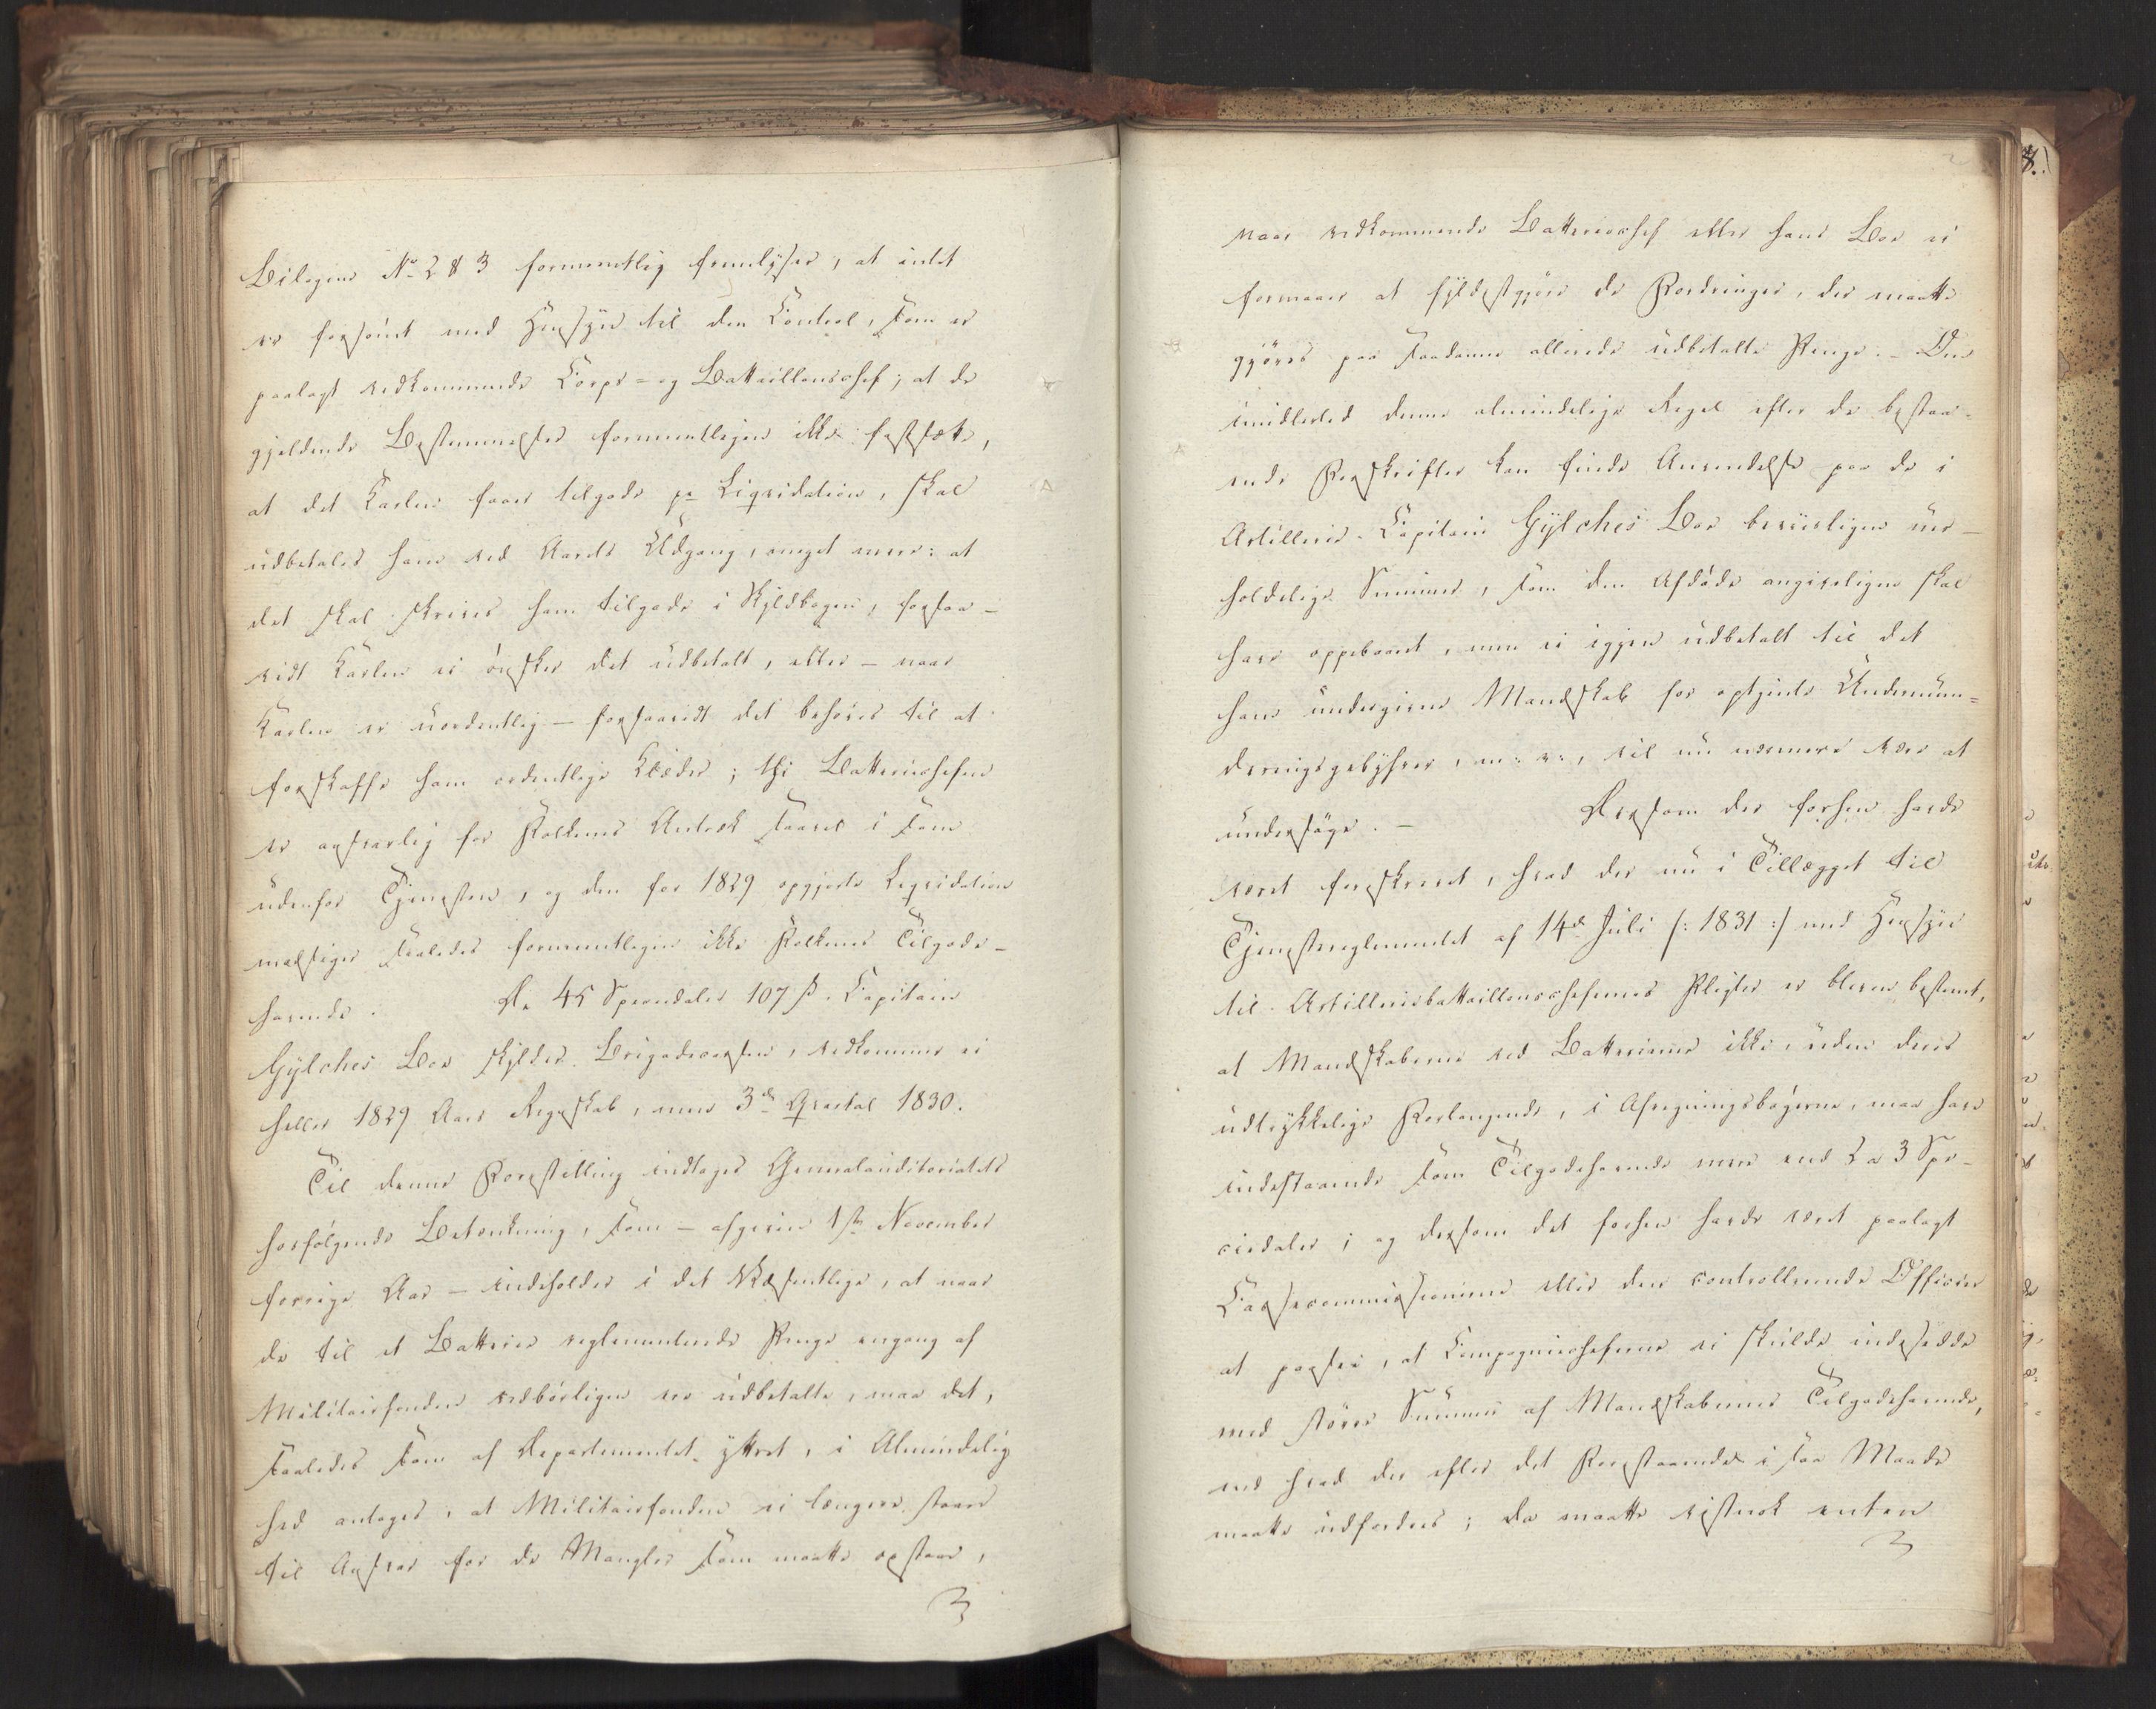 Bilagene No 2 & 3 formeentlig fremlyser, at intet
er forsömt med Hensyn til den Control, som er
paalagt vedkommende Corps- og Battaillonschef; at de
gjeldende Bestemmelser formeentligen ikke fastsætte,
at det Karlen faaer tilgode pr Liqvidation, skal
udbetales ham ved Aarets Udgang, meget mere: at
det skal skrives ham tilgode i Skyldbogen, forsaa-
vidt Karlen ei önsker det udbetalt, eller – naar
Karlen er uordentlig – forsaavidt det behöves til at
forskaffe ham ordentlige Klæder; thi Batteriechefen
er ansvarlig for Folkenes Antræk saavel i som
udenfor Tjenesten, og den for 1829 opgjorte Liqvidation
medtager saaledes formeentligen ikke Folkenes Tilgode-
havende. De 45 Speciedaler 107 ß. Capitain
Gylches Boe skylder Brigadecassen, vedkomme ei
heller 1829 Aars Regnskab, men 3de Qvartal 1830.
Til denne Forestilling indtages Generalauditoriatets
hosfölgende Betænkning, som – afgiven 1ste November
forrige Aar – indeholder i det Væsentlige, at naar
de til et Batterie reglementerede Penge engang af
Militairfonden vedbörligen ere udbetalte, maa det,
saaledes som af Departementet yttret, i Almindelig
hed antages, at Militairfonden ei længere staaer
til Ansvar for de Mangler som maatte opstaae,
naar vedkommende Batteriechef eller hans Boe ei
formaaer at fyldestgjöre de Fordringer, der maatte
gjöres paa saadanne allerede udbetalte Penge. – Om
imidlertid denne almindelige Regel efter de bestaa-
ende Forskrifter kan finde Anvendelse paa de i
Artillerie-Capitain Gylches Boe beviisligen uer-
holdelige Summer, som den Afdöde angiveligen skal
have oppebaaret, men ei igjen udbetalt til det
hans undergivne Mandskab for optjente Undermun-
deringsgebyhrer, m: v:, vil nu nærmere være at
undersöge. – Dersom der forhen havde
været foreskrevet, hvad der nu i Tillægget til
Tjenestereglementet af 14de Juli /: 1831 :/ med Hensyn
til Artilleriebattaillonschefernes Pligter er bleven bestemt,
at Mandskaberne ved Batterierne ikke, uden deres
udtrykkelige Forlangende, i Afregningsbögerne, maa have
indestaaende som Tilgodehavende mere end 2 a 3 Spe-
ciedaler; og dersom det forhen havde været paalagt
Cassecommissionerne eller den controllerende Officier
at paasee, at Compagniecheferne ei skulde indesidde
med större Summer af Mandskabernes Tilgodehavende,
end hvad der efter det Forestaaende i saa Maade
maatte udfordres; da maatte vistnok enten